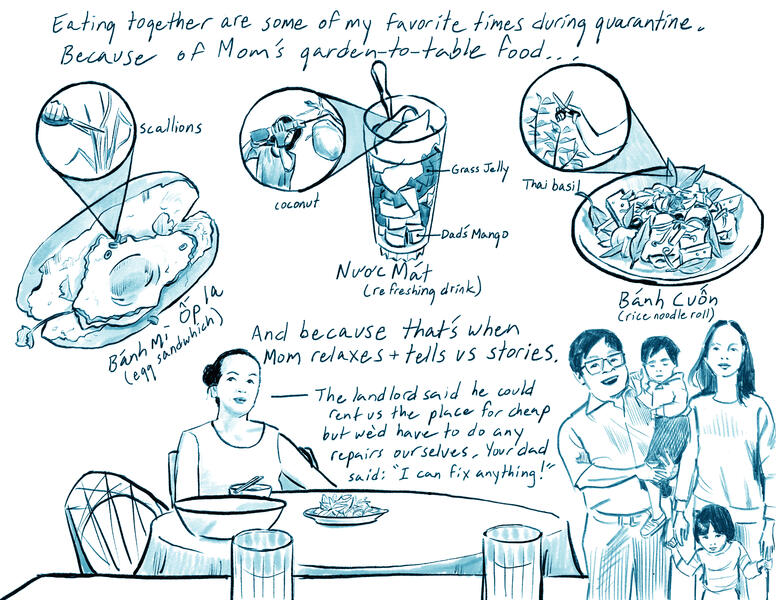 Eating together are some of my favorite times during quarantine.
Because of Mom's garden-to-table food...
scallions
coconut
Grass Jelly
Dad's Mango
Thai basil
Bánh Mì Ốp la
(egg sandwhich)
Nước Mát
(refreshing drink)
Bánh Cuốn
(rice noodle roll)
And because that's when
Mom relaxes + tells us stories.
The landlord said he could
rent us the place for cheap
but we'd have to do any
repairs ourselves. Your dad
said: "I can fix anything!"